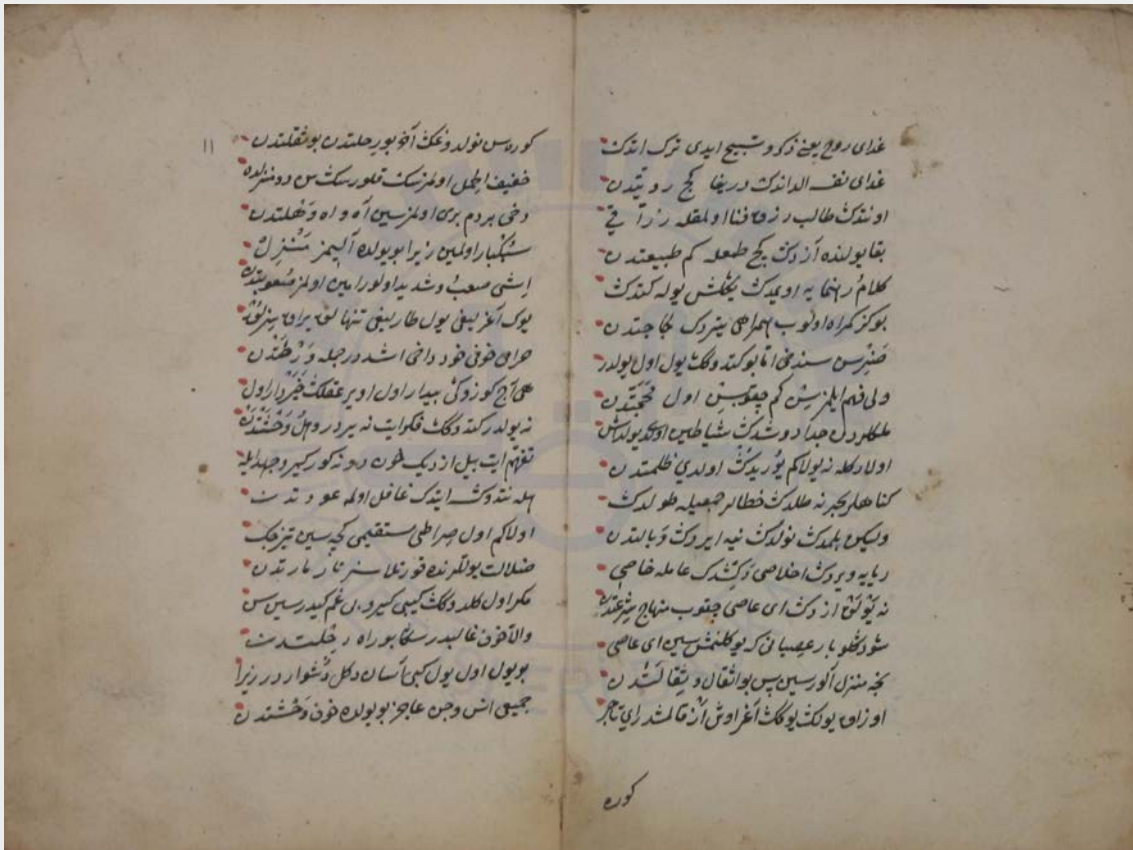 غدای روح یعنی ذکر و تسبیح ایدی ترک اتدک
غدای نفس الداندک دریغا کج رویتدن
اوتدک طالب رزق فنا اولمقله رزاقی
بقا یولنده آزدک کج طمعله کم طبیعتدن
کلام رهنمایه اویمدک یکلش یوله کتدک
بو کز کمراه اولوب همراهی یتردک لجاجتدن
صنرسن سندخی اتا بو کتدوکک یول اول یولدر
ولی فهم ایلمزسن کم چقوبسن اول محجتدن
ملکلردن جدا دوشدک شیاطین اولدی یولداش
اولاردکله نه یولاکم یوریدک اولدی ظلمتدن
کناهلر بحرنه طلدک خطالر جمعیله طولدک
ولیکن بلمدک نولدک نیه ایردک وبالتدن
ریایه ویردک اخلاصی دکشدک عامله خاصی
نه یولی ازدک ای عاصی چقوب منهاج شرعتدن
شودکلو بار عصیانی که یوکلنمش سین ای عاصی
نجه منزل الورسین پس بو اثقال و ثقالتدن
اوزاق یولک یوکک اغر اوش آز قالمشدر ای تاجر
کوره
۱۱
کوره سن نولدوغک آخر بو رحلتدن بو ثقلتدن
خفیف الحمل اولمزسک قلورسک سن دو منزلده
دخی هردم بری اولمزسین آه و اه وَهلتدن
سبکبار اولمین زیرا بو یولده آلیمز منزل
اشی صعب و شدید اولور امین اولمز صعوبتدن
یوک اغرلیغی یول طارلیغی تنهالق یراق سزلق
حرامی خوفی خود داخی اشددر جمله ورطه‌دن
هی آج کوزوکی بیدار اول اویر عقلک خبردار اول
نه یولدر کتدوکک فکر ایت نه یردر و هل وحشتدن
تفهم ایت بیل ازدیک طون دونه کور کیرو جهد ایله
اولاکم اول صراطی مستقیمی کچه سین تیزجک
ضلالت یوللرنده قورتلاسز نار ماردن
مکر اول کلدوکک کیبی کیرو بی غم کیدرسین سن
والاخوف غالبدر سکا بو راه رحلتدن
بو یول اول یول کبی آسان دکل دشواردر زیرا
جمیع انس و جن عاجز بو یولده خوف وحشتدن